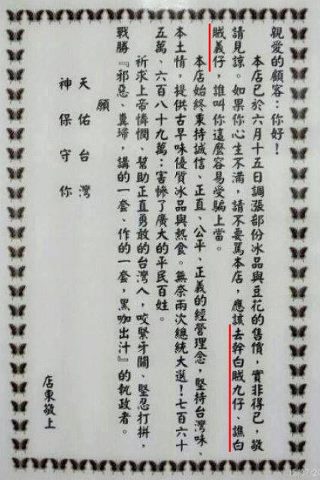 親愛的顧客:你好!
本店已於六月十五日調張部份冰品與豆花的售價,實非得已,敬
請見諒。如果你心生不滿,請不要罵本店,應該去幹白賊九仔、譙白
賊義仔,誰叫你這麼容易受騙上當。
本店始終秉持誠信、正直、公平、正義的經營理念,堅持台灣味、
本土情,提供古早味優質冰品與熱食。無奈兩次總統大選!七百六十
五萬、六百八十九萬:害慘了廣大的平民百姓。
祈求上帝憐憫、幫助正直勇敢的台灣人,咬緊牙關、堅忍打拼,
戰勝『邪惡、糞掃,講的一套、作的一套,黑咖出汁』的執政者。
願
天佑台灣
神保守你
店東敬上